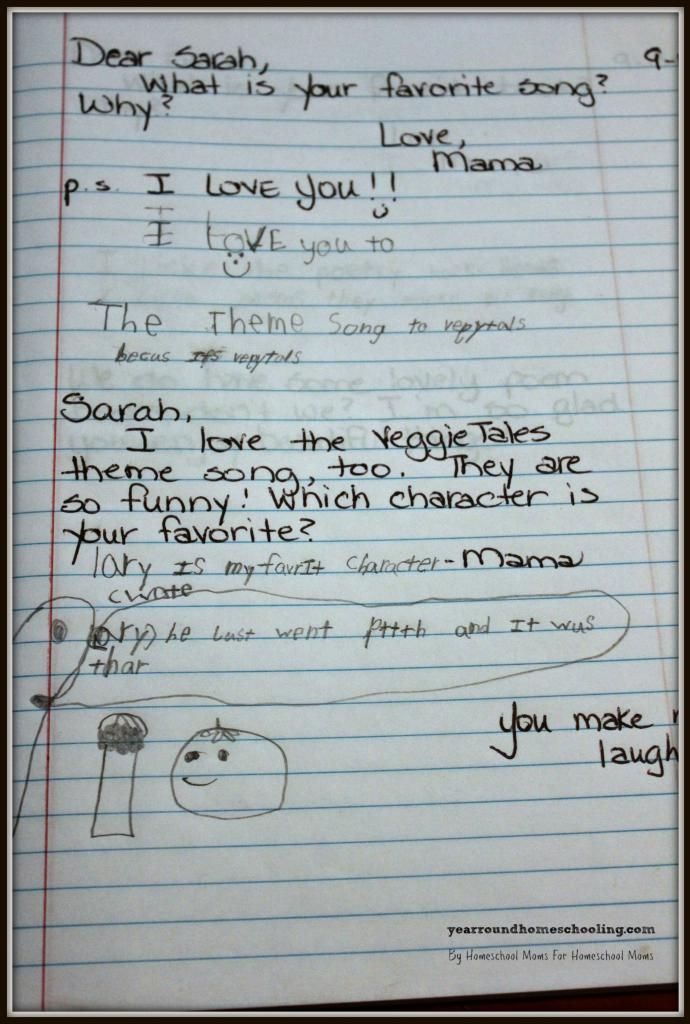 9-
Dear Sarah,
What is your favorite song?
Why?
Love,
Mama
p.s. I LOVE you!!
I LOVE you to
The Theme Song to vepytals
becus its vepytals
Sarah,
I love the VeggieTales
theme song, too. They are
so funny! Which character is
your favorite?
-Mama
lary Is my favrIt character
(lary) he Last went pttth and It wus
thar
you make
laugh
yearroundhomeschooling.com
By Homeschool Moms For Homeschool Moms